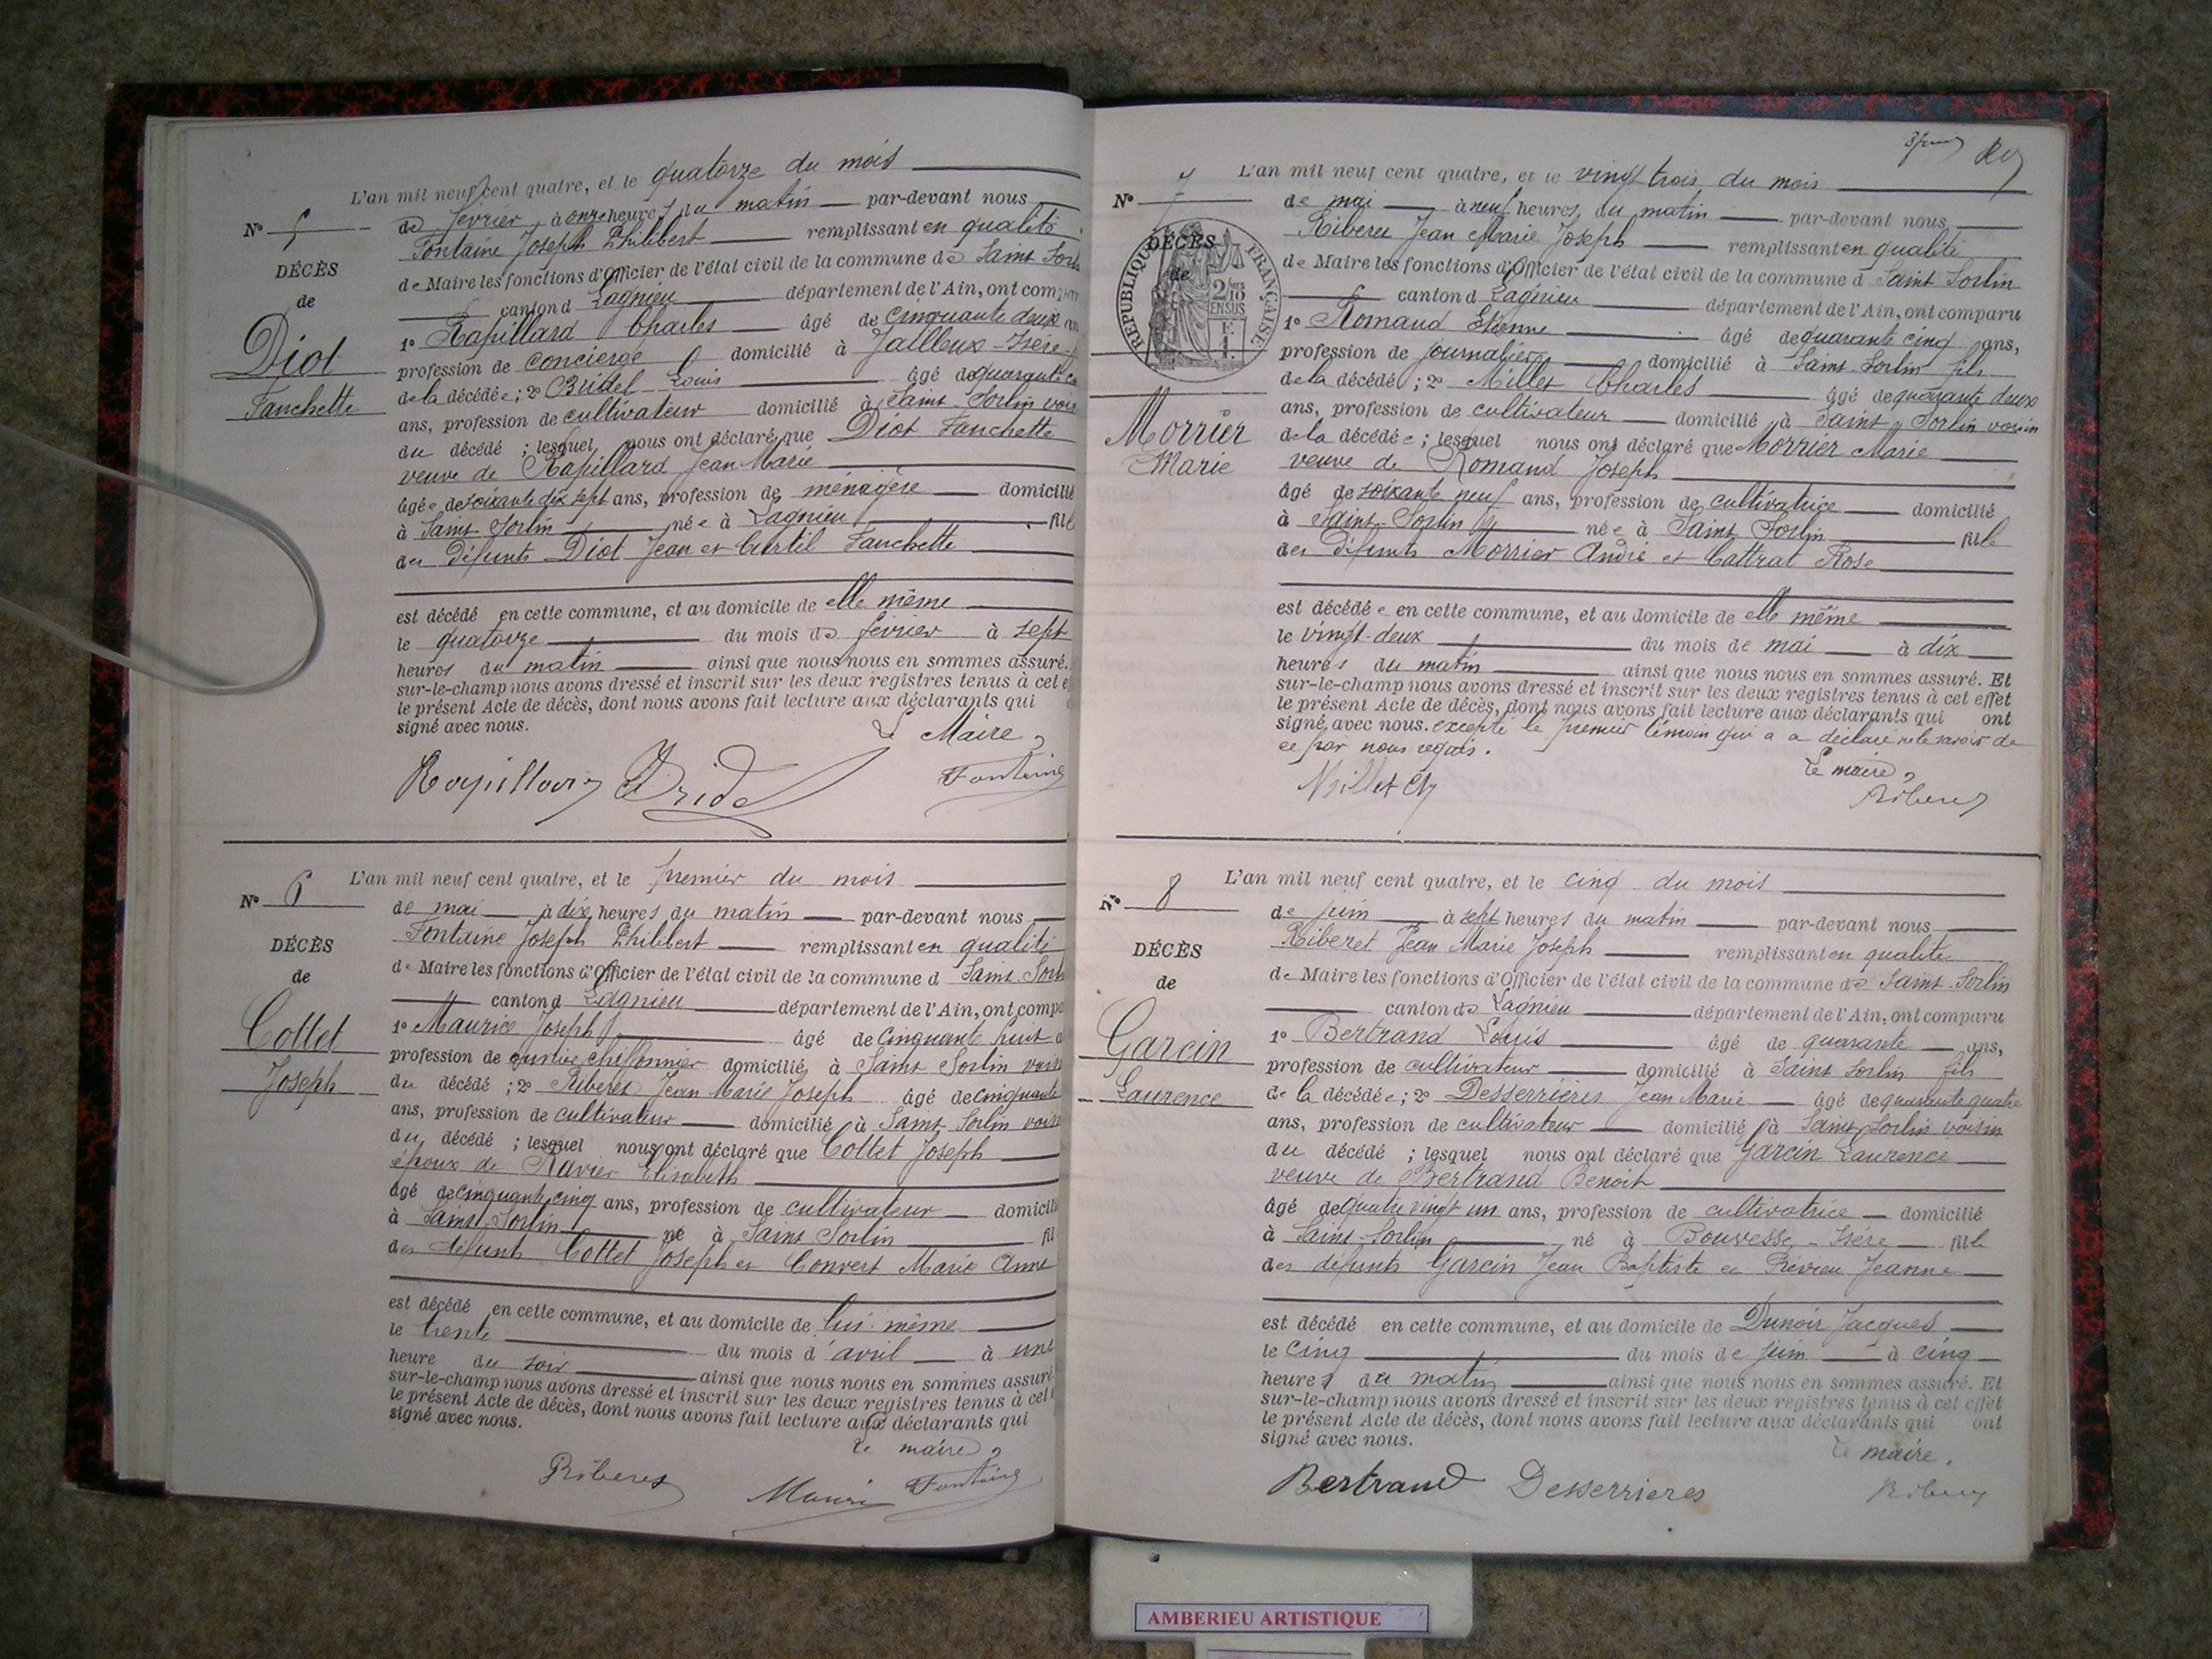 L'an mil neuf cent quatre, et le quatorze du mois
No 5
de fevrier à onze heures du matin par-devant nous
Fontaine Joseph Philibert remplissant en qualité
DÉCÈS
de Maire les fonctions d'Officier de l'état civil de la commune de Saint Sorl
de
canton d Lagnieu département de l'Ain, ont compar
Diot
Fanchette
1o Rapillard Charles âgé de cinquante deux an
profession de concierge domicilié à Jailleux-Isère f
de la décédée ; 2o Bridel Louis âgé de quarante
ans, profession de cultivateur domicilié à Saint Sorlin vois
du décédé ; lesquel nous ont déclaré que Diot Fanchette
veuve de Rapillard Jean Marie
âgée de soixante dix sept ans, profession de ménagère domicilié
à Saint Sorlin née à Lagnieu fille
des défunts Diot Jean et Fanchette
est décédé en cette commune, et au domicile de elle même
le quatorze du mois de fevrier à sept
heures du matin ainsi que nous nous en sommes assuré.
sur-le-champ nous avons dressé et inscrit sur les deux registres tenus à cet e
le présent Acte de décès, dont nous avons fait lecture aux déclarants qui
signé avec nous.
Le Maire,
Rapillard Bridel Fontaine
L'an mil neuf cent quatre, et le premier du mois
No 6
de mai à dix heures du matin par-devant nous
Fontaine Joseph Philibert remplissant en qualité
DÉCÈS
de Maire les fonctions d'Officier de l'état civil de la commune d Saint Sorl
de
canton d Lagnieu département de l'Ain, ont compa
Cottet
Joseph
1o Maurice Joseph âgé de cinquante huit a
profession de chiffonnier domicilié à Saint Sorlin vois
du décédé ; 2o Riberet Jean Marie Joseph âgé de cinquante
ans, profession de cultivateur domicilié à Saint Sorlin voisi
du décédé ; lesquel nous ont déclaré que Cottet Joseph
époux de Ravier Elisabeth
âgé de cinquante cinq ans, profession de cultivateur domicili
à Saint Sorlin né à Saint Sorlin fil
des défunts Cottet Joseph et Convert Marie Anne
est décédé en cette commune, et au domicile de lui-même
le trente du mois d'avril à une
heure du soir ainsi que nous nous en sommes assuré
sur-le-champ nous avons dressé et inscrit sur les deux registres tenus à cet
le présent Acte de décès, dont nous avons fait lecture aux déclarants qui
signé avec nous.
Le maire,
Riberet Mauri Fontaine
L'an mil neuf cent quatre, et le vingt trois du mois
No 7
de mai à neuf heures du matin par-devant nous
Riberet Jean Marie Joseph remplissant en qualité
DÉCÈS
de
RÉPUBLIQUE FRANÇAISE
de Maire les fonctions d'Officier de l'état civil de la commune d Saint Sorlin
canton d Lagnieu département de l'Ain, ont comparu
1o Romand Etienne âgé de quarante cinq ans,
profession de journalier domicilié à Saint Sorlin fils
de la décédé ; 2o Millet Charles âgé de quarante deux
Morrier
Marie
ans, profession de cultivateur domicilié à Saint Sorlin voisin
de la décédée ; lesquel nous ont déclaré que Morrier Marie
veuve de Romand Joseph
âgé de soixante neuf ans, profession de cultivatrice domicilié
à Saint Sorlin née à Saint Sorlin fille
des défunts Morrier André et Cattrat Rose
est décédée en cette commune, et au domicile de elle même
le vingt-deux du mois de mai à dix
heures du matin ainsi que nous nous en sommes assuré. Et
sur-le-champ nous avons dressé et inscrit sur les deux registres tenus à cet effet
le présent Acte de décès, dont nous avons fait lecture aux déclarants qui ont
signé avec nous. excepté le premier témoin qui a a déclaré ne le savoir de
ce par nous requis.
Le maire,
Millet Ch Riberet
L'an mil neuf cent quatre, et le cinq du mois
No 8
de juin à sept heures du matin par-devant nous
Riberet Jean Marie Joseph remplissant en qualité
DÉCÈS
de Maire les fonctions d'Officier de l'état civil de la commune de Saint-Sorlin
de
canton de Lagnieu département de l'Ain, ont comparu
Garcin
Laurence
1o Bertrand Louis âgé de quarante ans,
profession de cultivateur domicilié à Saint Sorlin fils
de la décédée ; 2o Desserrières Jean Marie âgé de quarante quatre
ans, profession de cultivateur domicilié à Saint Sorlin voisin
du décédé ; lesquel nous ont déclaré que Garcin Laurence
veuve de Bertrand Benoit
âgé de quatre vingt un ans, profession de cultivatrice domicilié
à Saint-Sorlin né à Bouvesse-Isère fille
des défunts Garcin Jean Baptiste et Jeanne
est décédé en cette commune, et au domicile de Dunoir Jacques
le cinq du mois de juin à cinq
heures du matin ainsi que nous nous en sommes assuré. Et
sur-le-champ nous avons dressé et inscrit sur les deux registres tenus à cet effet
le présent Acte de décès, dont nous avons fait lecture aux déclarants qui ont
signé avec nous.
Le maire,
Bertrand Desserrieres Riberet
AMBERIEU ARTISTIQUE